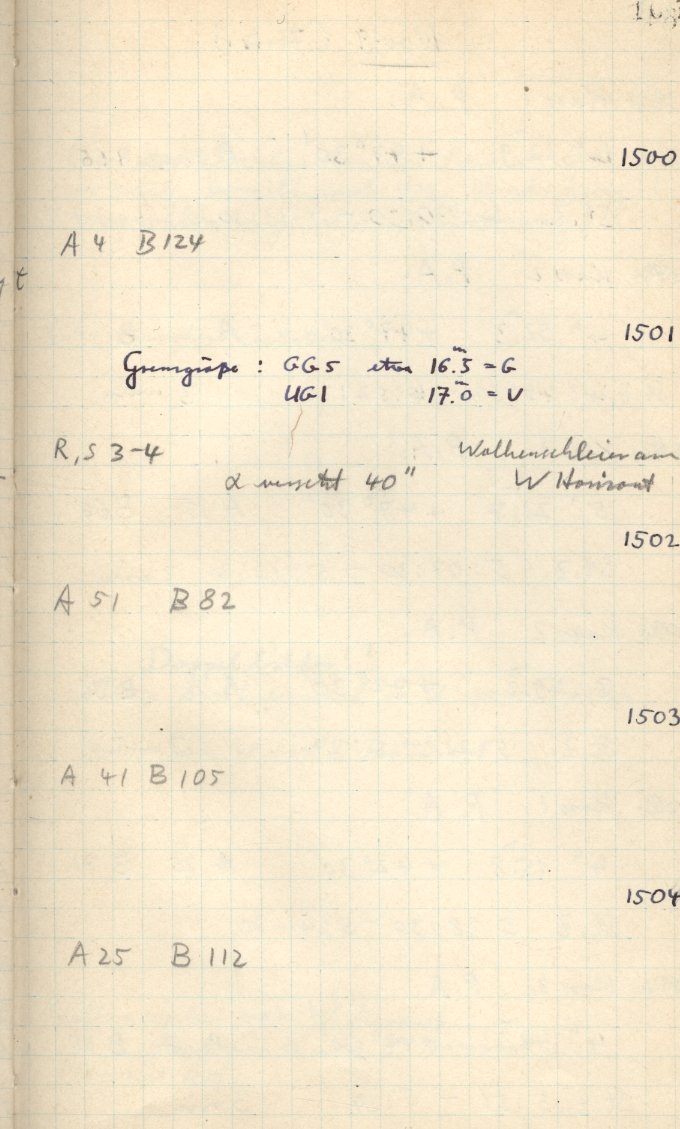 1500
A 4 B 124
t
1501
Grenzgröße : GG5 etwa 16.ᵐ5 = G
UG1 17.ᵐ0 = V
R, S 3-4 Wolkenschleier am
α versetzt 40" W Horizont
1502
A 51 B 82
1503
A 41 B 105
1504
A 25 B 112